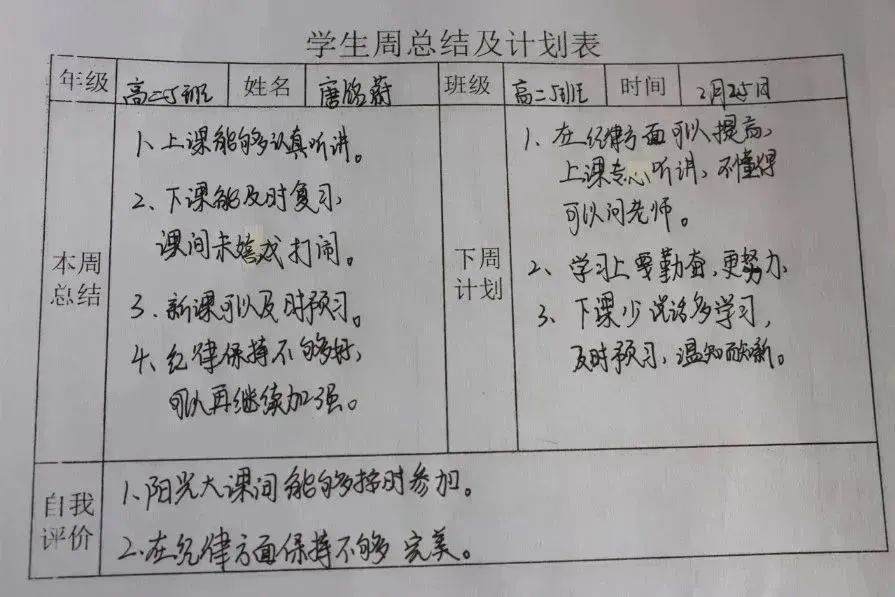 学生周总结及计划表
年级 高二5班 姓名 唐 蔚 班级 高二5班 时间 2月25日
本周总结
1、上课能够认真听讲。
2、下课能及时复习,
课间未嬉戏打闹。
3、新课可以及时预习。
4、纪律保持不够好,
可以再继续加强。
下周计划
1、在纪律方面可以提高,
上课专心听讲、不懂得
可以问老师。
2、学习上要勤奋,更努力、
3、下课少说话多学习,
及时预习,温知而知新。
自我评价
1.阳光大课间能够按时参加。
2.在纪律方面保持不够完美。